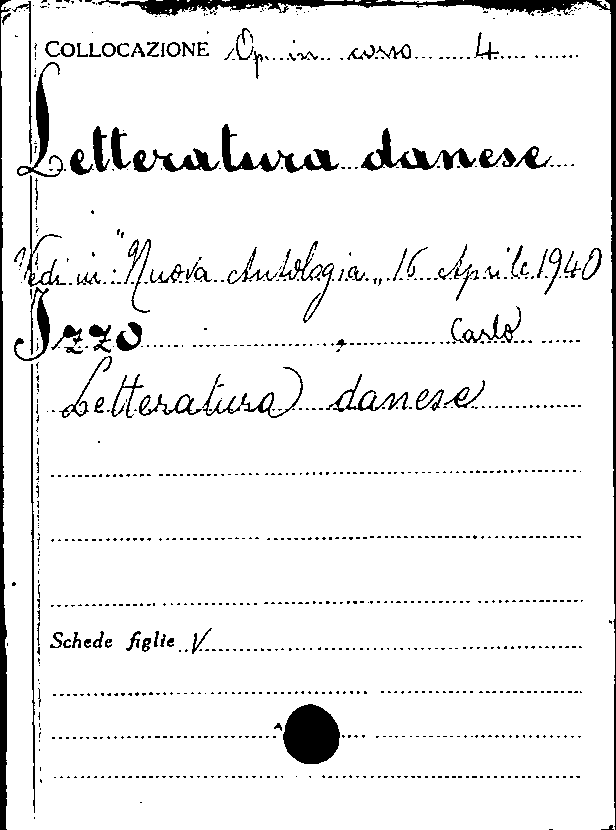 COLLOCAZIONE Op. in corso 4
Letteratura danese
Vedi in: "Nuova Antologia„ 16 Aprile 1940
Izzo, Carlo
Letteratura danese
Schede figlie V